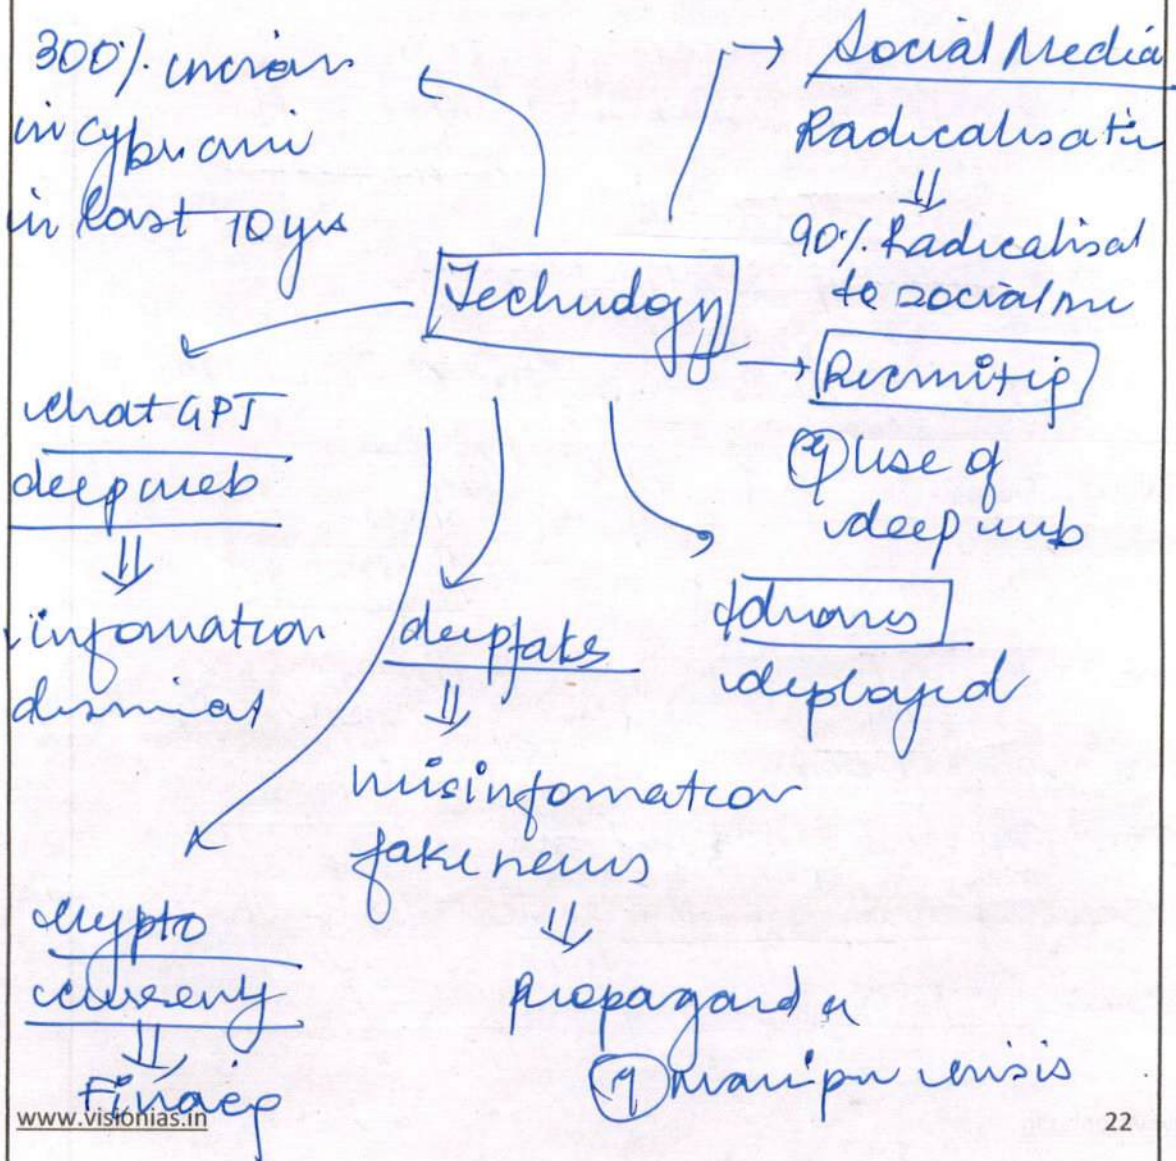 300% increas
in cyber crime
in last 10 yrs
Social Media
Radicalisati
⇓
90% Radicalisat
to social me
Technology
Recruiting
eg use of
deep web
chat GPT
deep web
⇓
information
dismiat
deepfakes
⇓
misinfomation
fake news
⇓
Propaganda
eg Manipur crisis
drones
deployed
crypto
currency
⇓
Financing
www.visionias.in
22